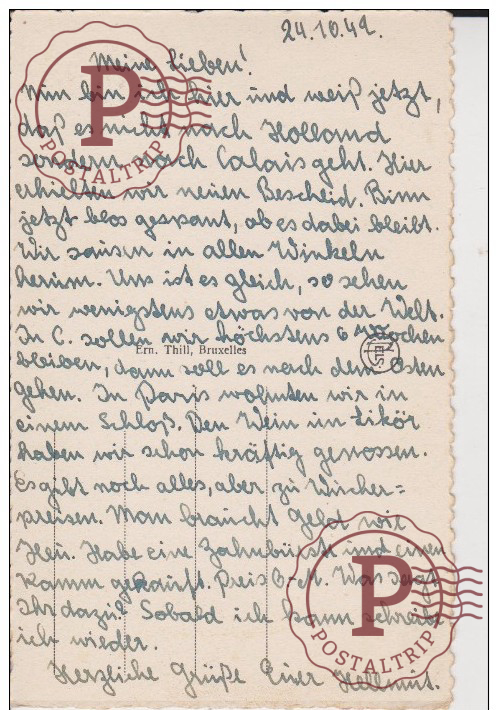 24.10.41.
Meine Lieben!
Nun bin ich hier und weiß jetzt,
daß es nicht nach Holland
sondern nach Calais geht. Hier
erhielten wir neuen Bescheid. Binn
jetzt blos gespant, ob es dabei bleibt.
Wir sausen in allen Winkeln
herum. Uns ist es gleich, so sehen
wir wenigstens etwas von der Welt.
In C. sollen wir höchstens 6 Wochen
Ern. Thill, Bruxelles
bleiben, dann soll es nach dem Osten
gehen. In Paris wohnten wir in
einem Schloß. Den Wein in Likör
haben wir schon kräftig genossen.
Es gibt noch alles, aber zu Wucher=
preisen. Man braucht Geld wie
Heu. Habe eine Zahnbürste und einen
Kamm gekauft. Preis 6.-M. Was sagt
Ihr dazu? Sobald ich kann schreibe
ich wieder.
Herzliche Grüße Euer Hellmut.
P
POSTALTRIP
P
POSTALTRIP